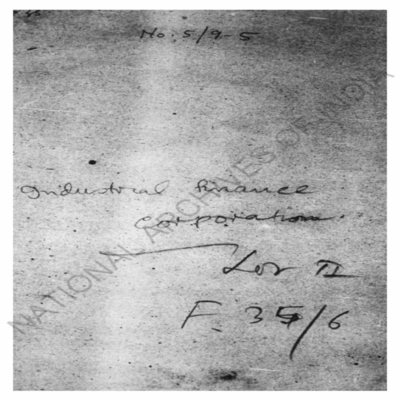 No: 5/9-5
Industrial finance
corporation.
F. 35/6
NATIONAL ARCHIVES OF INDIA